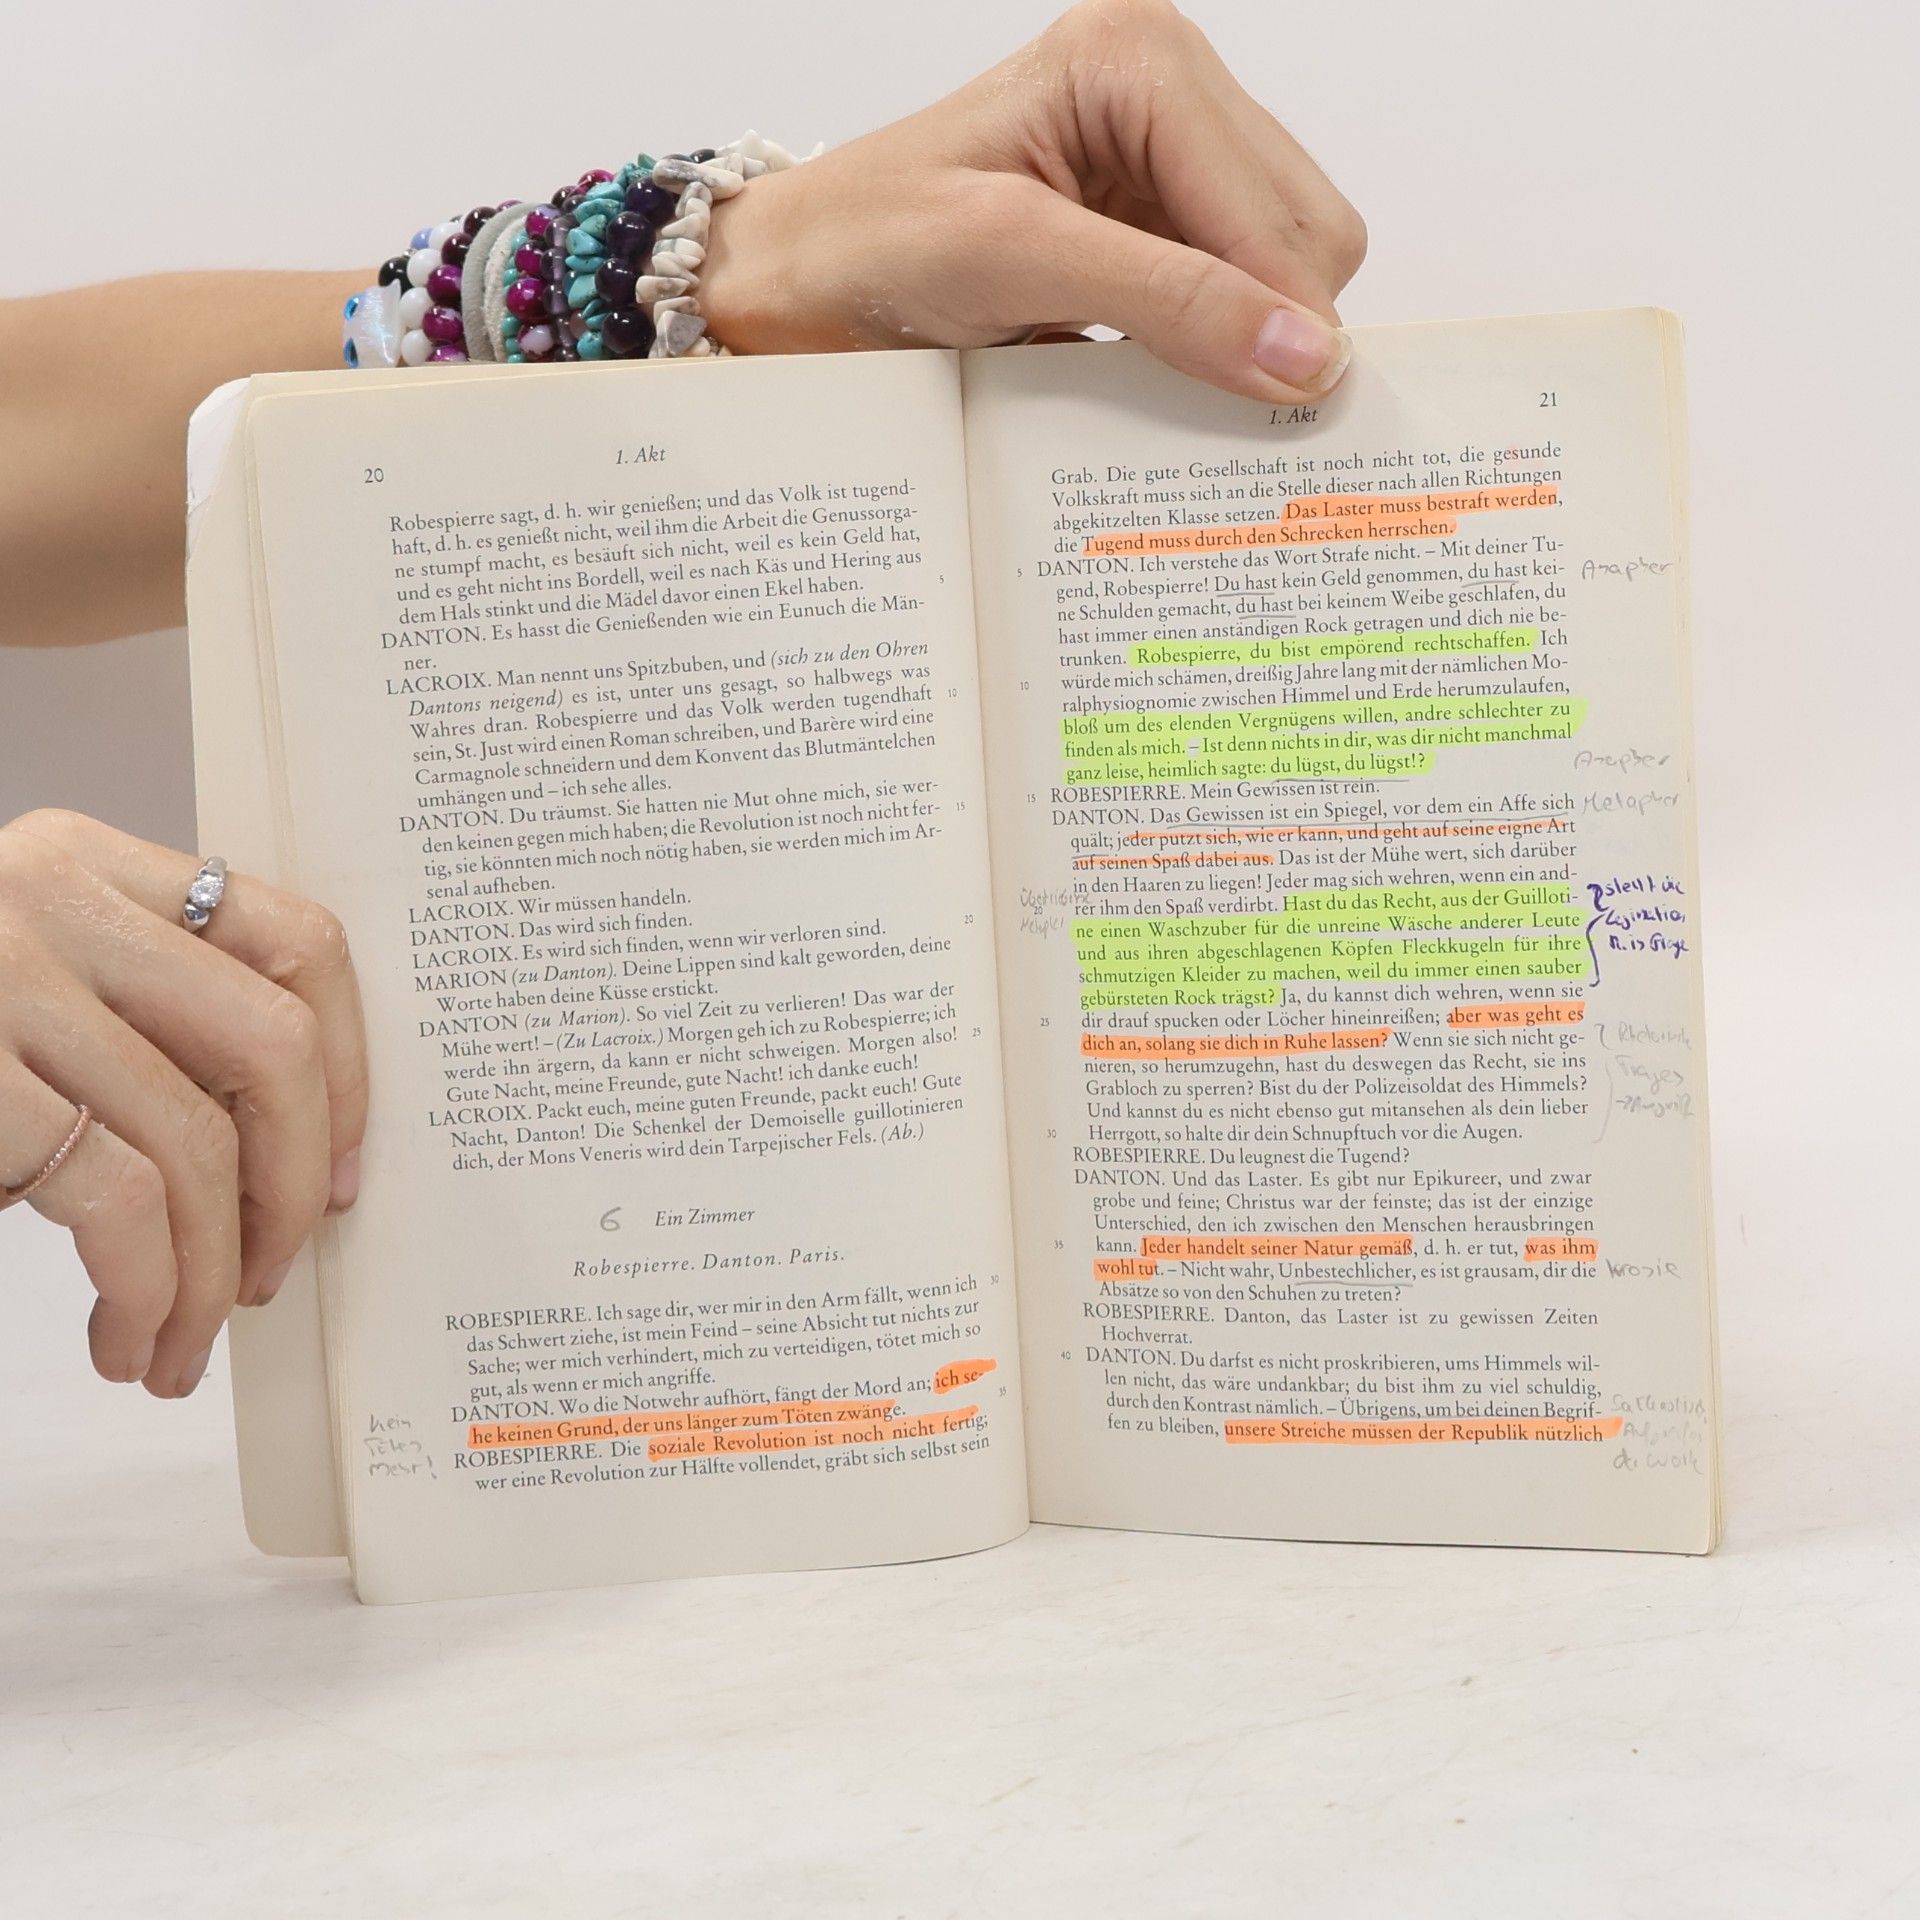 20
1. Akt
Robespierre sagt, d. h. wir genießen; und das Volk ist tugend-
haft, d. h. es genießt nicht, weil ihm die Arbeit die Genussorga-
ne stumpf macht, es besäuft sich nicht, weil es kein Geld hat,
und es geht nicht ins Bordell, weil es nach Käs und Hering aus
dem Hals stinkt und die Mädel davor einen Ekel haben.
5
DANTON. Es hasst die Genießenden wie ein Eunuch die Män-
ner.
LACROIX. Man nennt uns Spitzbuben, und (sich zu den Ohren
Dantons neigend) es ist, unter uns gesagt, so halbwegs was
Wahres dran. Robespierre und das Volk werden tugendhaft
10
sein, St. Just wird einen Roman schreiben, und Barère wird eine
Carmagnole schneidern und dem Konvent das Blutmäntelchen
umhängen und – ich sehe alles.
DANTON. Du träumst. Sie hatten nie Mut ohne mich, sie wer-
den keinen gegen mich haben; die Revolution ist noch nicht fer-
15
tig, sie könnten mich noch nötig haben, sie werden mich im Ar-
senal aufheben.
LACROIX. Wir müssen handeln.
DANTON. Das wird sich finden.
LACROIX. Es wird sich finden, wenn wir verloren sind.
20
MARION (zu Danton). Deine Lippen sind kalt geworden, deine
Worte haben deine Küsse erstickt.
DANTON (zu Marion). So viel Zeit zu verlieren! Das war der
Mühe wert! – (Zu Lacroix.) Morgen geh ich zu Robespierre; ich
werde ihn ärgern, da kann er nicht schweigen. Morgen also!
25
Gute Nacht, meine Freunde, gute Nacht! ich danke euch!
LACROIX. Packt euch, meine guten Freunde, packt euch! Gute
Nacht, Danton! Die Schenkel der Demoiselle guillotinieren
dich, der Mons Veneris wird dein Tarpejischer Fels. (Ab.)
6 Ein Zimmer
Robespierre. Danton. Paris.
ROBESPIERRE. Ich sage dir, wer mir in den Arm fällt, wenn ich
30
das Schwert ziehe, ist mein Feind – seine Absicht tut nichts zur
Sache; wer mich verhindert, mich zu verteidigen, tötet mich so
gut, als wenn er mich angriffe.
DANTON. Wo die Notwehr aufhört, fängt der Mord an; ich se-
he keinen Grund, der uns länger zum Töten zwänge.
35
ROBESPIERRE. Die soziale Revolution ist noch nicht fertig;
wer eine Revolution zur Hälfte vollendet, gräbt sich selbst sein
kein
Töten
mehr!
1. Akt
21
Grab. Die gute Gesellschaft ist noch nicht tot, die gesunde
Volkskraft muss sich an die Stelle dieser nach allen Richtungen
abgekitzelten Klasse setzen. Das Laster muss bestraft werden,
die Tugend muss durch den Schrecken herrschen.
5 DANTON. Ich verstehe das Wort Strafe nicht. – Mit deiner Tu-
gend, Robespierre! Du hast kein Geld genommen, du hast kei-
Anapher
ne Schulden gemacht, du hast bei keinem Weibe geschlafen, du
hast immer einen anständigen Rock getragen und dich nie be-
trunken. Robespierre, du bist empörend rechtschaffen. Ich
10 würde mich schämen, dreißig Jahre lang mit der nämlichen Mo-
ralphysiognomie zwischen Himmel und Erde herumzulaufen,
bloß um des elenden Vergnügens willen, andre schlechter zu
finden als mich. – Ist denn nichts in dir, was dir nicht manchmal
ganz leise, heimlich sagte: du lügst, du lügst!?
Anapher
15 ROBESPIERRE. Mein Gewissen ist rein.
DANTON. Das Gewissen ist ein Spiegel, vor dem ein Affe sich
Metapher
quält; jeder putzt sich, wie er kann, und geht auf seine eigne Art
auf seinen Spaß dabei aus. Das ist der Mühe wert, sich darüber
in den Haaren zu liegen! Jeder mag sich wehren, wenn ein and-
20 rer ihm den Spaß verdirbt. Hast du das Recht, aus der Guilloti-
stellt die
ne einen Waschzuber für die unreine Wäsche anderer Leute
Legimation
und aus ihren abgeschlagenen Köpfen Fleckkugeln für ihre
R. in Frage
schmutzigen Kleider zu machen, weil du immer einen sauber
gebürsteten Rock trägst? Ja, du kannst dich wehren, wenn sie
25 dir drauf spucken oder Löcher hineinreißen; aber was geht es
dich an, solang sie dich in Ruhe lassen? Wenn sie sich nicht ge-
nieren, so herumzugehn, hast du deswegen das Recht, sie ins
Fragen
Grabloch zu sperren? Bist du der Polizeisoldat des Himmels?
Und kannst du es nicht ebenso gut mitansehen als dein lieber
30 Herrgott, so halte dir dein Schnupftuch vor die Augen.
ROBESPIERRE. Du leugnest die Tugend?
DANTON. Und das Laster. Es gibt nur Epikureer, und zwar
grobe und feine; Christus war der feinste; das ist der einzige
Unterschied, den ich zwischen den Menschen herausbringen
35 kann. Jeder handelt seiner Natur gemäß, d. h. er tut, was ihm
wohl tut. – Nicht wahr, Unbestechlicher, es ist grausam, dir die
Ironie
Absätze so von den Schuhen zu treten?
ROBESPIERRE. Danton, das Laster ist zu gewissen Zeiten
Hochverrat.
40 DANTON. Du darfst es nicht proskribieren, ums Himmels wil-
len nicht, das wäre undankbar; du bist ihm zu viel schuldig,
durch den Kontrast nämlich. – Übrigens, um bei deinen Begrif-
fen zu bleiben, unsere Streiche müssen der Republik nützlich